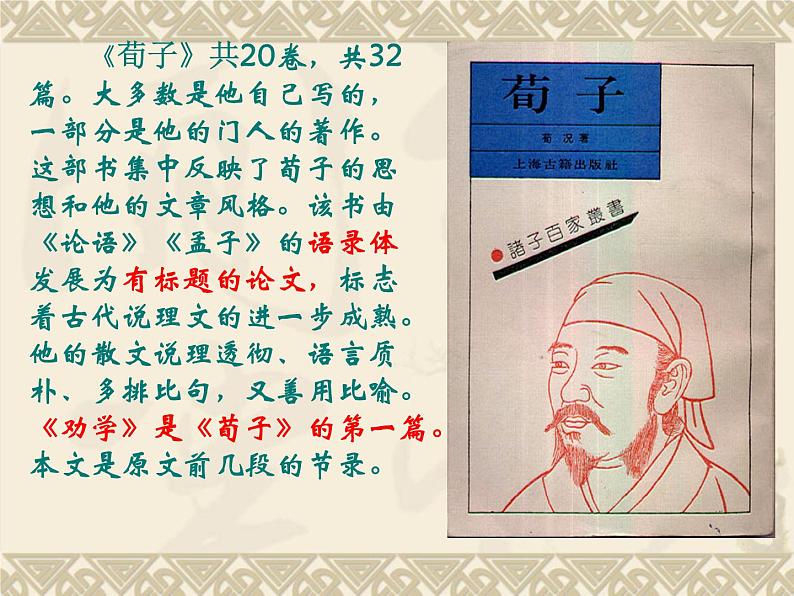 《荀子》共20卷，共32
篇。大多数是他自己写的，
一部分是他的门人的著作。
这部书集中反映了荀子的思
想和他的文章风格。该书由
《论语》《孟子》的语录体
发展为有标题的论文，标志
着古代说理文的进一步成熟。
他的散文说理透彻、语言质
朴、多排比句，又善用比喻。
《劝学》是《荀子》的第一篇。
本文是原文前几段的节录。
荀子
荀况著
上海古籍出版社
諸子百家叢書